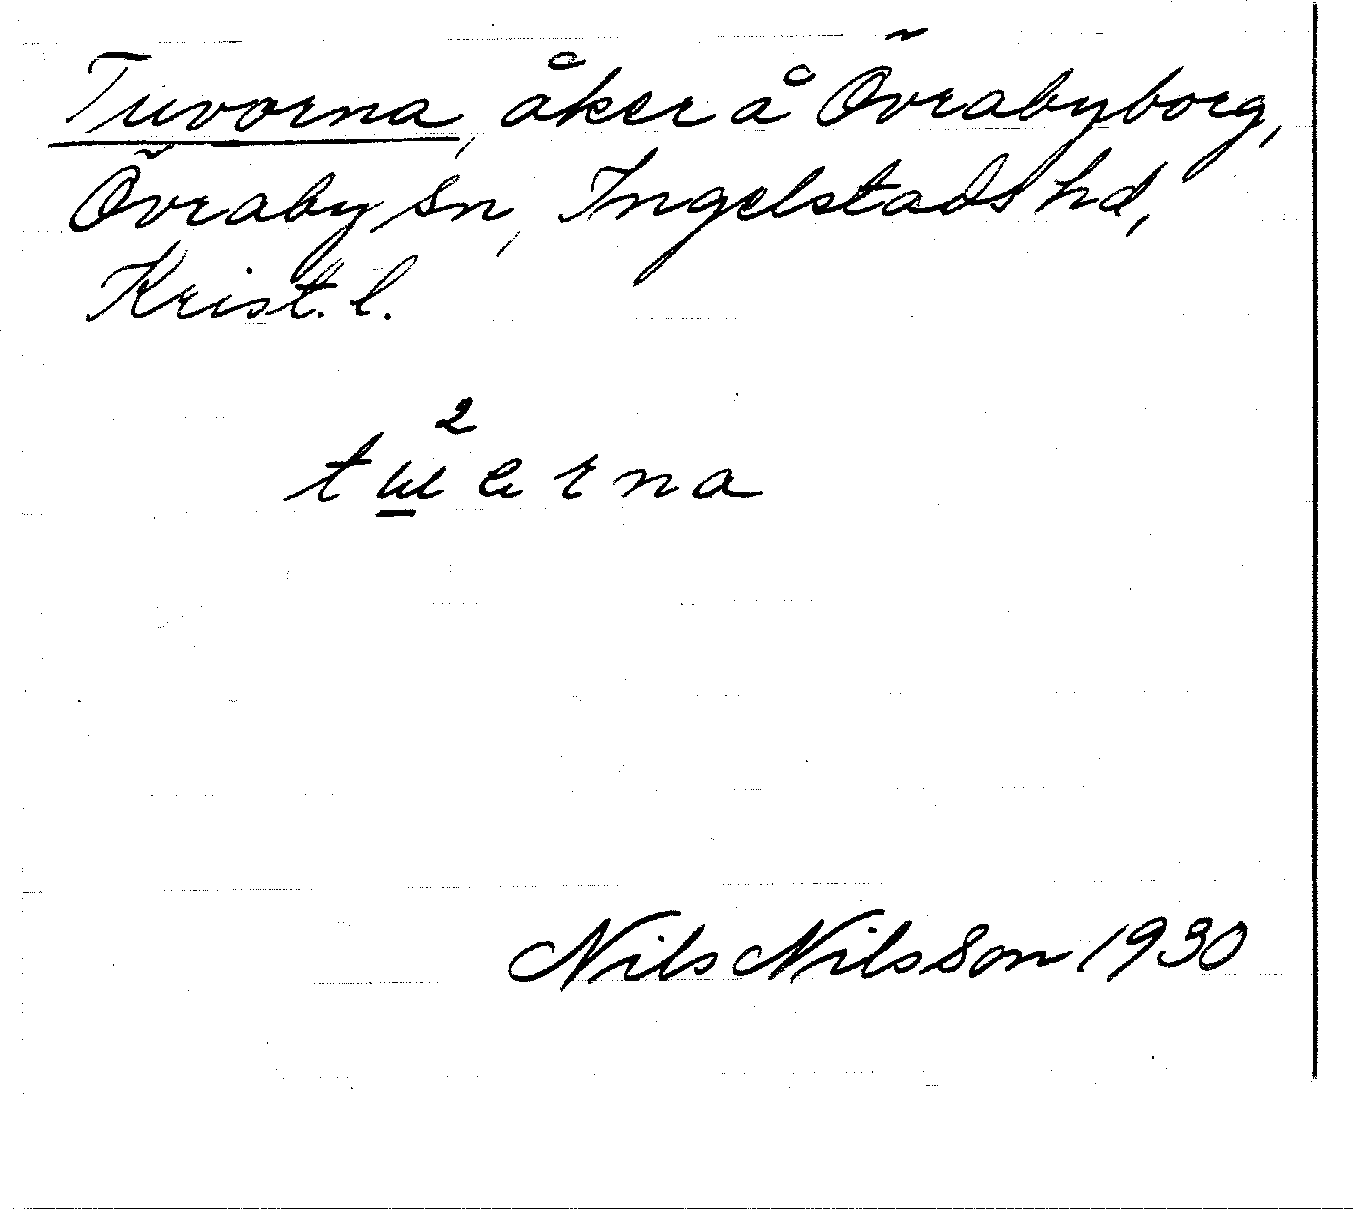 Tuvorna, åker å Övrabyborg,
Övraby sn, Ingelstads hd,
Krist. l.
Nils Nilsson 1930